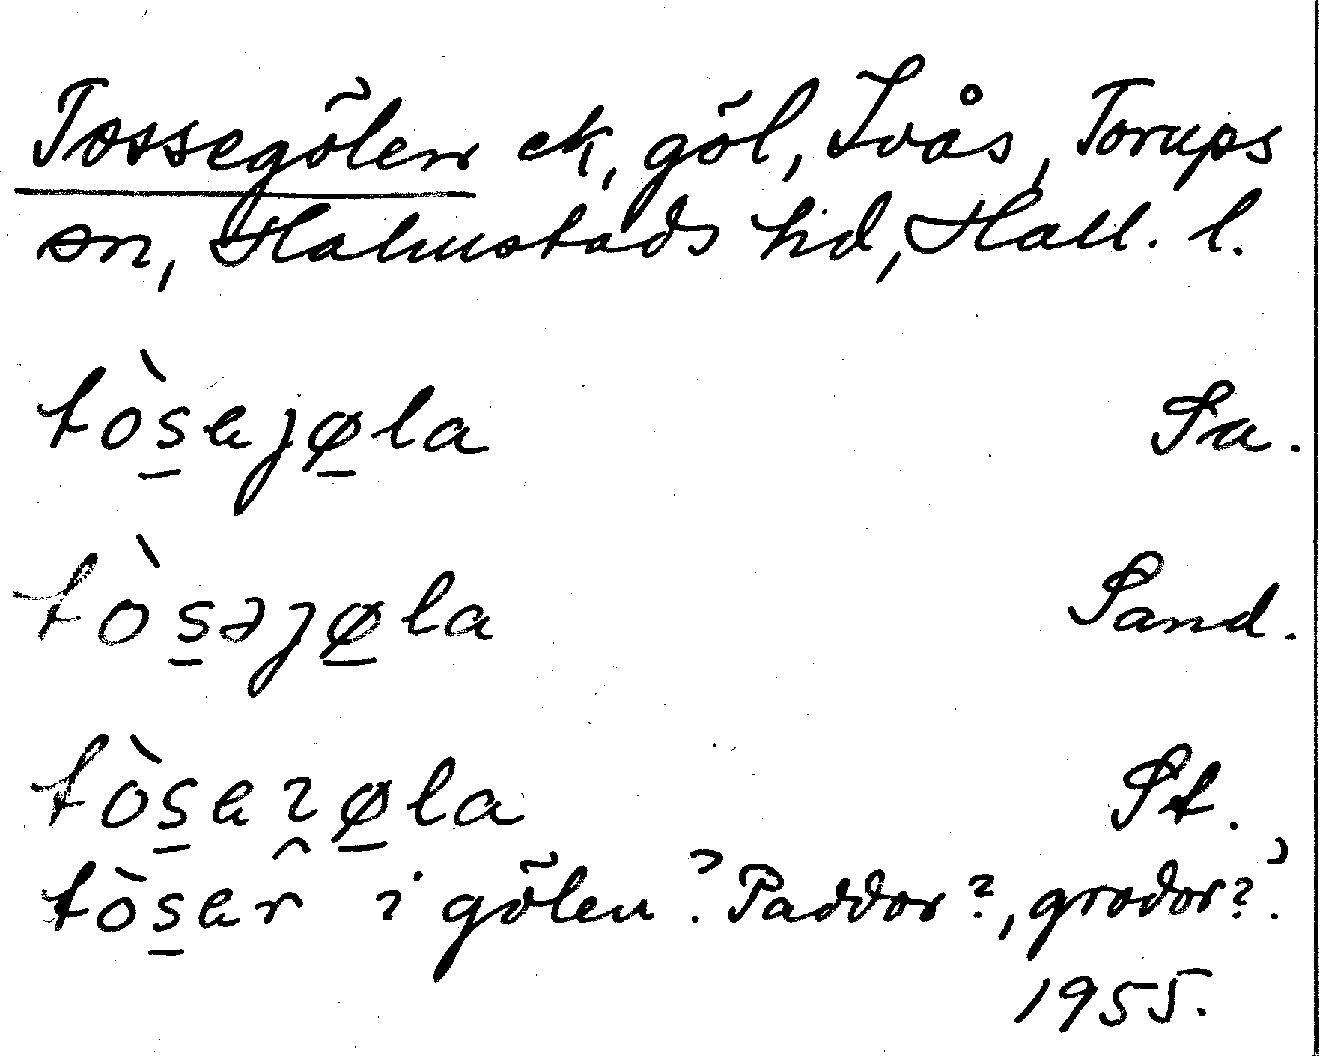 Tossegölen ek, göl, Ivås, Torups
sn, Halmstads hd, Hall. l.
tòs̲ɐȷø̲la Sa.
tòs̲əȷø̲la Sand.
tòs̲ɐıø̲la St.
tòs̲ɐr̂ i gölen". Paddor?, grodor?".
1955.